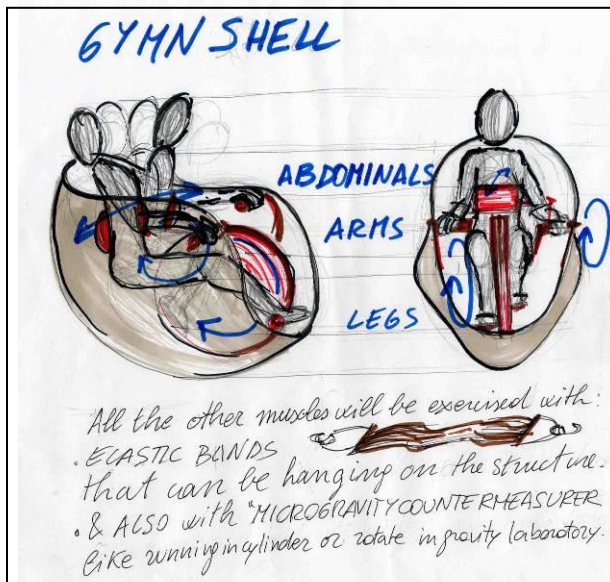 GYMN SHELL
ABDOMINALS
ARMS
LEGS
All the other muscles will be exercised with:
. ELASTIC BANDS
that can be hanging on the structure.
. & ALSO with "MICROGRAVITY COUNTERMEASURER
like running in cylinder or rotate in gravity laboratory.